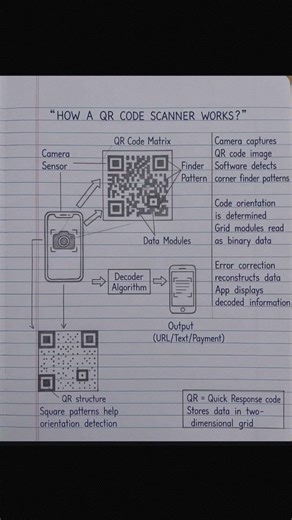 "HOW A QR CODE SCANNER WORKS?"
QR Code Matrix
Camera
Sensor
Finder
Pattern
Data Modules
Camera captures
QR code image
Software detects
corner finder patterns
Code orientation
is determined
Grid modules read
as binary data
Error correction
reconstructs data
App displays
decoded information
Decoder
Algorithm
Output
(URL/Text/Payment)
QR structure
Square patterns help
orientation detection
QR = Quick Response code
Stores data in two-
dimensional grid